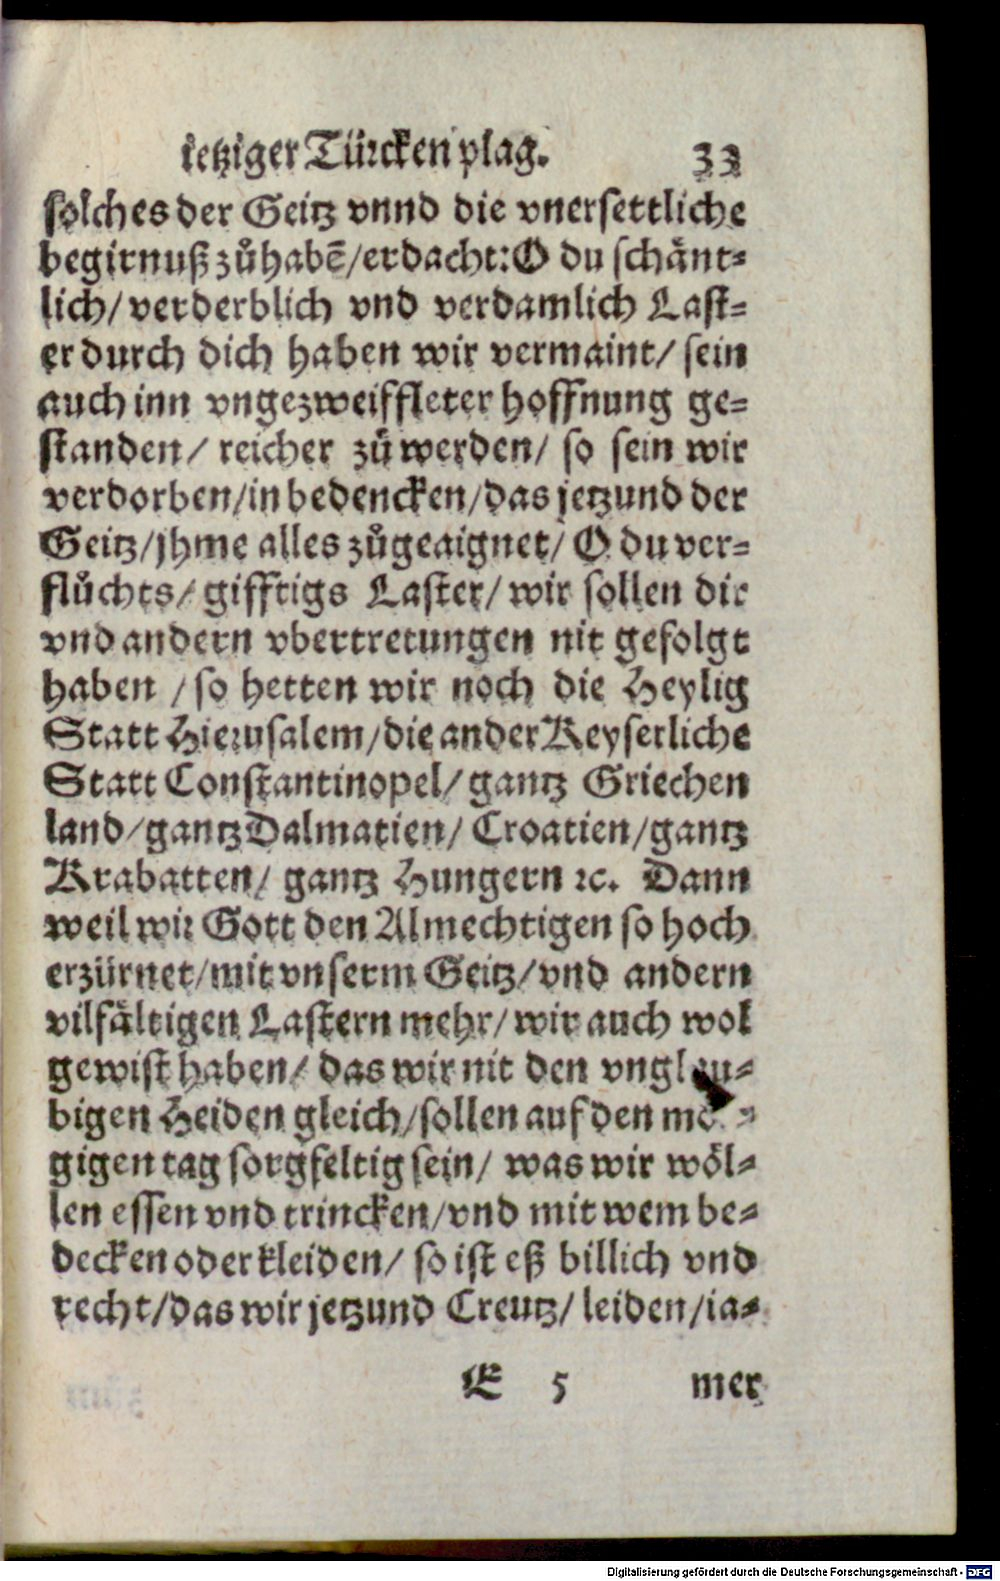 ietziger Türcken plag. 33
solches der Geitz vnnd die vnersettliche
begirnuß zůhabē/erdacht: O du schånt⸗
lich/ verderblich vnd verdamlich Last⸗
er durch dich haben wir vermaint/ sein
auch inn vngezweiffleter hoffnung ge⸗
standen/ reicher zů werden/ so sein wir
verdorben/in bedencken/das jetzund der
Geitz/jhme alles zůgeaignet/ O du ver⸗
flůchts/ gifftigs Laster/ wir sollen dir
vnd andern vbertretungen nit gefolgt
haben /so hetten wir noch die Heylig
Statt Hierusalem/die ander Keyserliche
Statt Constantinopel/ gantz Griechen
land/gantz Dalmatien/ Croatien/gantz
Krabatten/ gantz Hungern ꝛc. Dann
weil wir Gott den Almechtigen so hoch
erzürnet/mit vnserm Geitz/vnd andern
vilfåltigen Lastern mehr/ wir auch wol
gewist haben/ das wir nit den vnglau⸗
bigen Heiden gleich/sollen auf den mo⸗
gigen tag sorgfeltig sein/ was wir wöl⸗
len essen vnd trincken/vnd mit wem be⸗
decken oder kleiden/ so ist eß billich vnd
recht/das wir jetzund Creutz/ leiden/ia⸗
E 5 mer
Digitalisierung gefördert durch die Deutsche Forschungsgemeinschaft - DFG